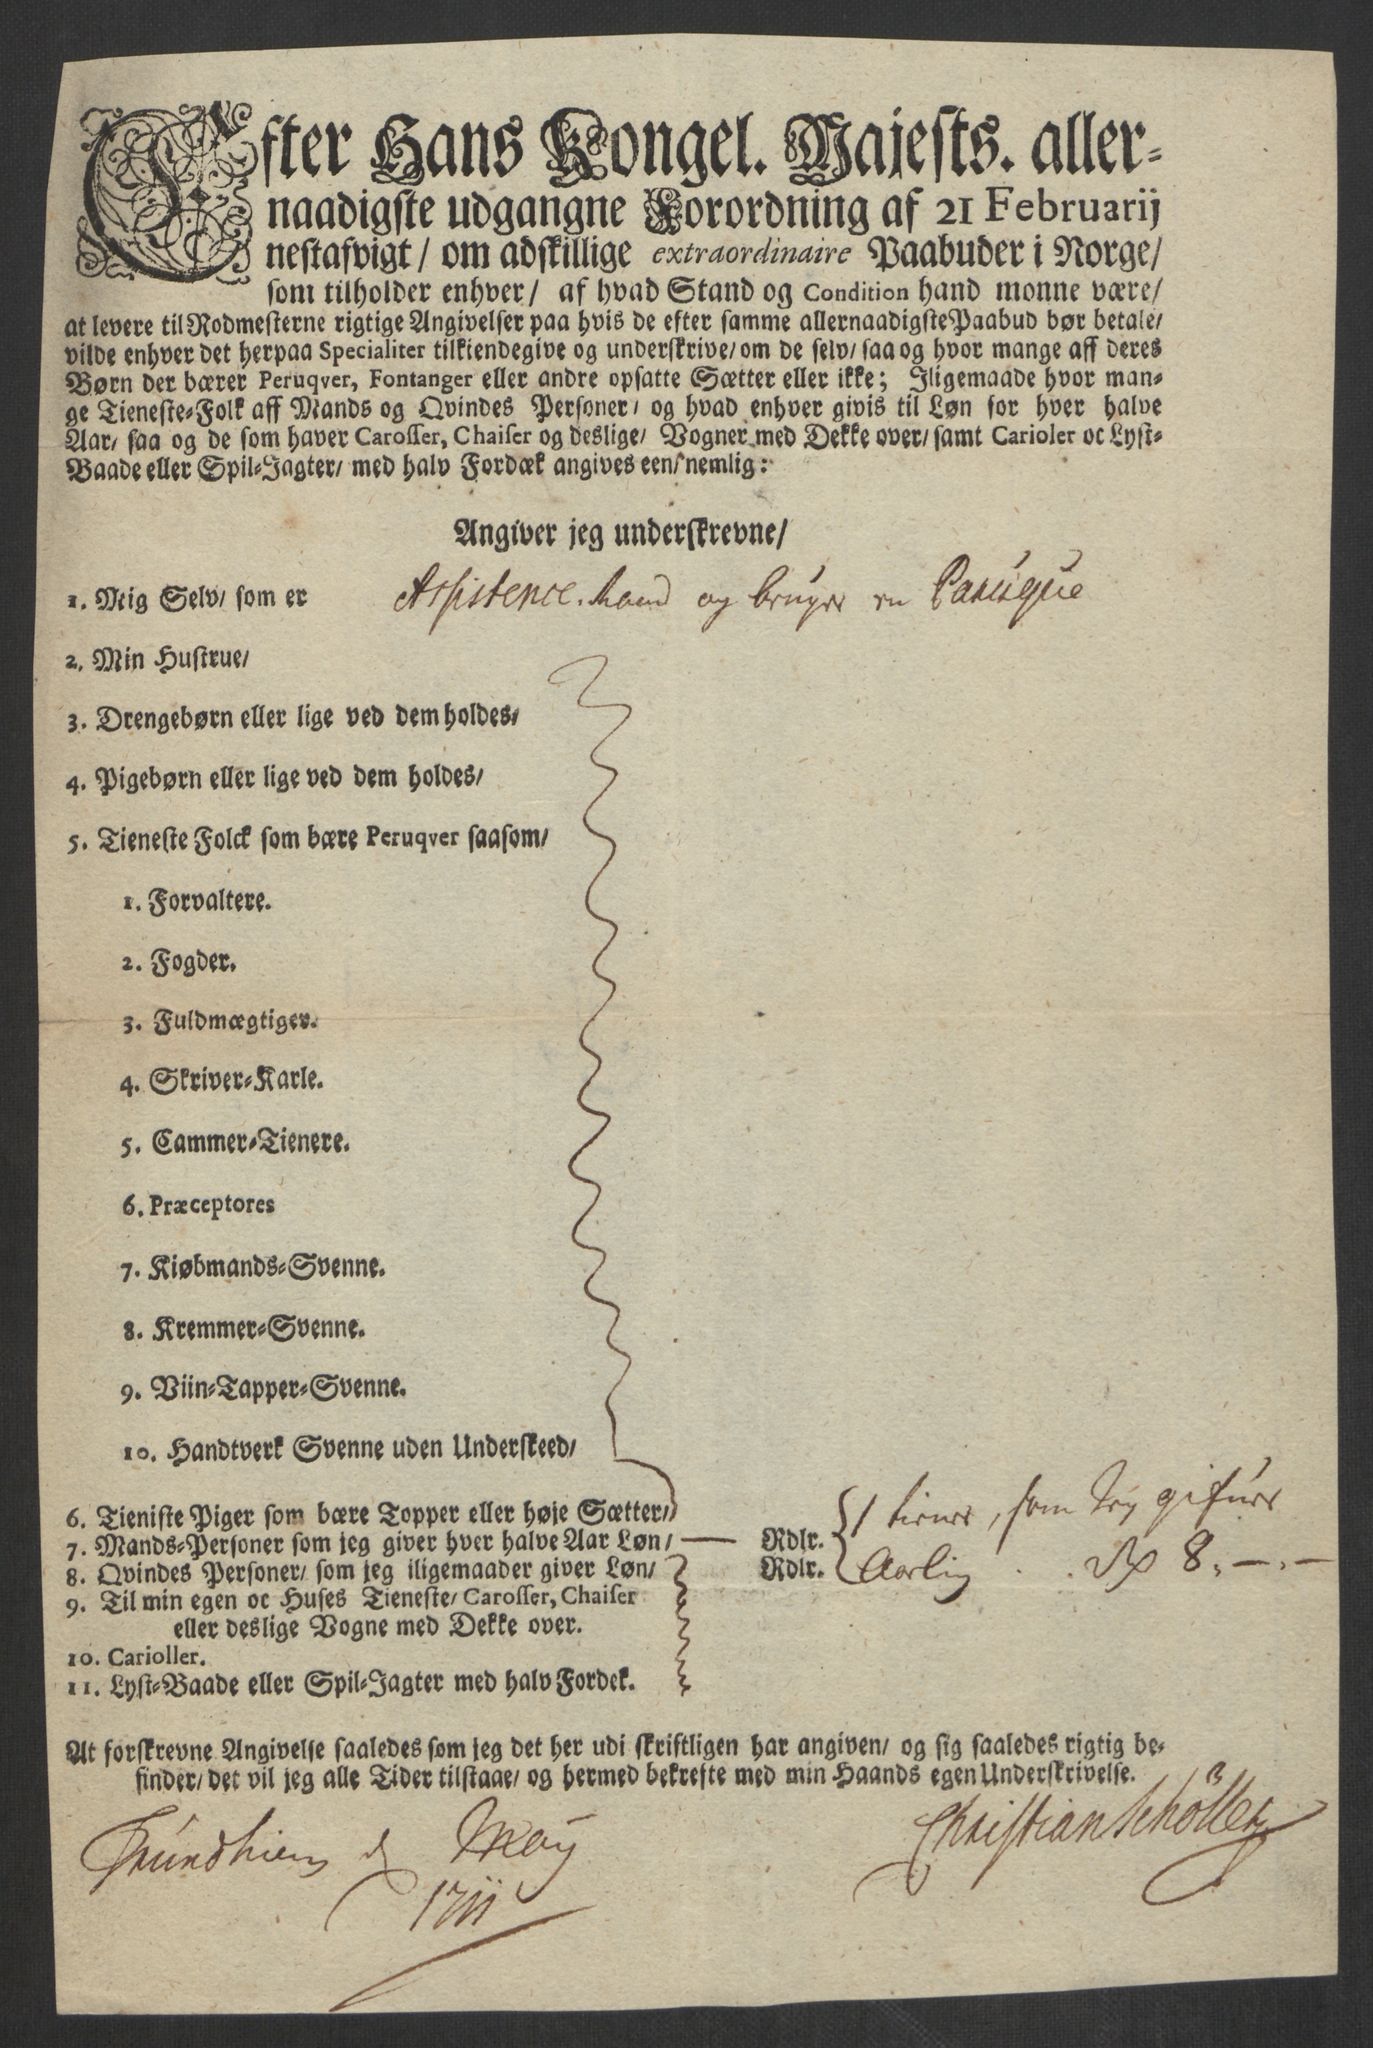 Efter Hans Kongel. Majests. aller-
naadigste udgangne Forordning af 21 Februarij
nestafvigt/ om adskillige extraordinaire Paabuder i Norge/
som tilholder enhver/ af hvad Stand og Condition hand monne være/
at levere til Rodmesterne rigtige Angivelser paa hvis de efter samme allernaadigste Paabud bør betale/
vilde enhver det herpaa Specialiter tilkiendegive og underskrive/ om de selv/ saa og hvor mange aff deres
Børn der bærer Peruqver, Fontanger eller andre opsatte Sætter eller ikke; Iligemaade hvor man-
ge Tieneste-Folk aff Mands og Qvindes Personer/ og hvad enhver givis til Løn for hver halve
Aar/ saa og de som haver Carosser, Chaiser og deslige/ Vogner med Dekke over/ samt Carioler oc Lyst-
Baade eller Spil-Jagter/ med halv Fordæk angives een/ nemlig:
Angiver jeg underskrevne/
1. Mig Selv/ som er Assistence. Raad og bruger en Paruque
2. Min Hustrue/
3. Drengebørn eller lige ved dem holdes/
4. Pigebørn eller lige ved dem holdes/
5. Tieneste Folck som bære Peruqver saasom/
1. Forvaltere.
2. Fogder.
3. Fuldmægtiger.
4. Skriver-Karle.
5. Cammer-Tienere.
6. Præceptores
7. Kiøbmands-Svenne.
8. Kremmer-Svenne.
9. Viin-Tapper-Svenne.
10. Handtverk Svenne uden Underskeed/
6. Tieniste Piger som bære Topper eller høje Sætter/
7. Mands-Personer som jeg giver hver halve Aar Løn/ — Rdlr. 1 tiener, som Jeg gifuer
8. Qvindes Personer/ som jeg iligemaader giver Løn/ Rdlr. Aarlig . . 8. — . —
9. Til min egen oc Huses Tieneste/ Carosser, Chaiser
eller deslige Vogne med Dekke over.
10. Carioller.
11. Lyst-Baade eller Spil-Jagter med halv Fordek.
At forskrevne Angivelse saaledes som jeg det her udi skriftligen har angiven/ og sig saaledes rigtig be-
finder/ det vil jeg alle Tider tilstaae/ og hermed bekrefte med min Haands egen Underskrivelse.
Trundhiem d May Christian Schöller
1711